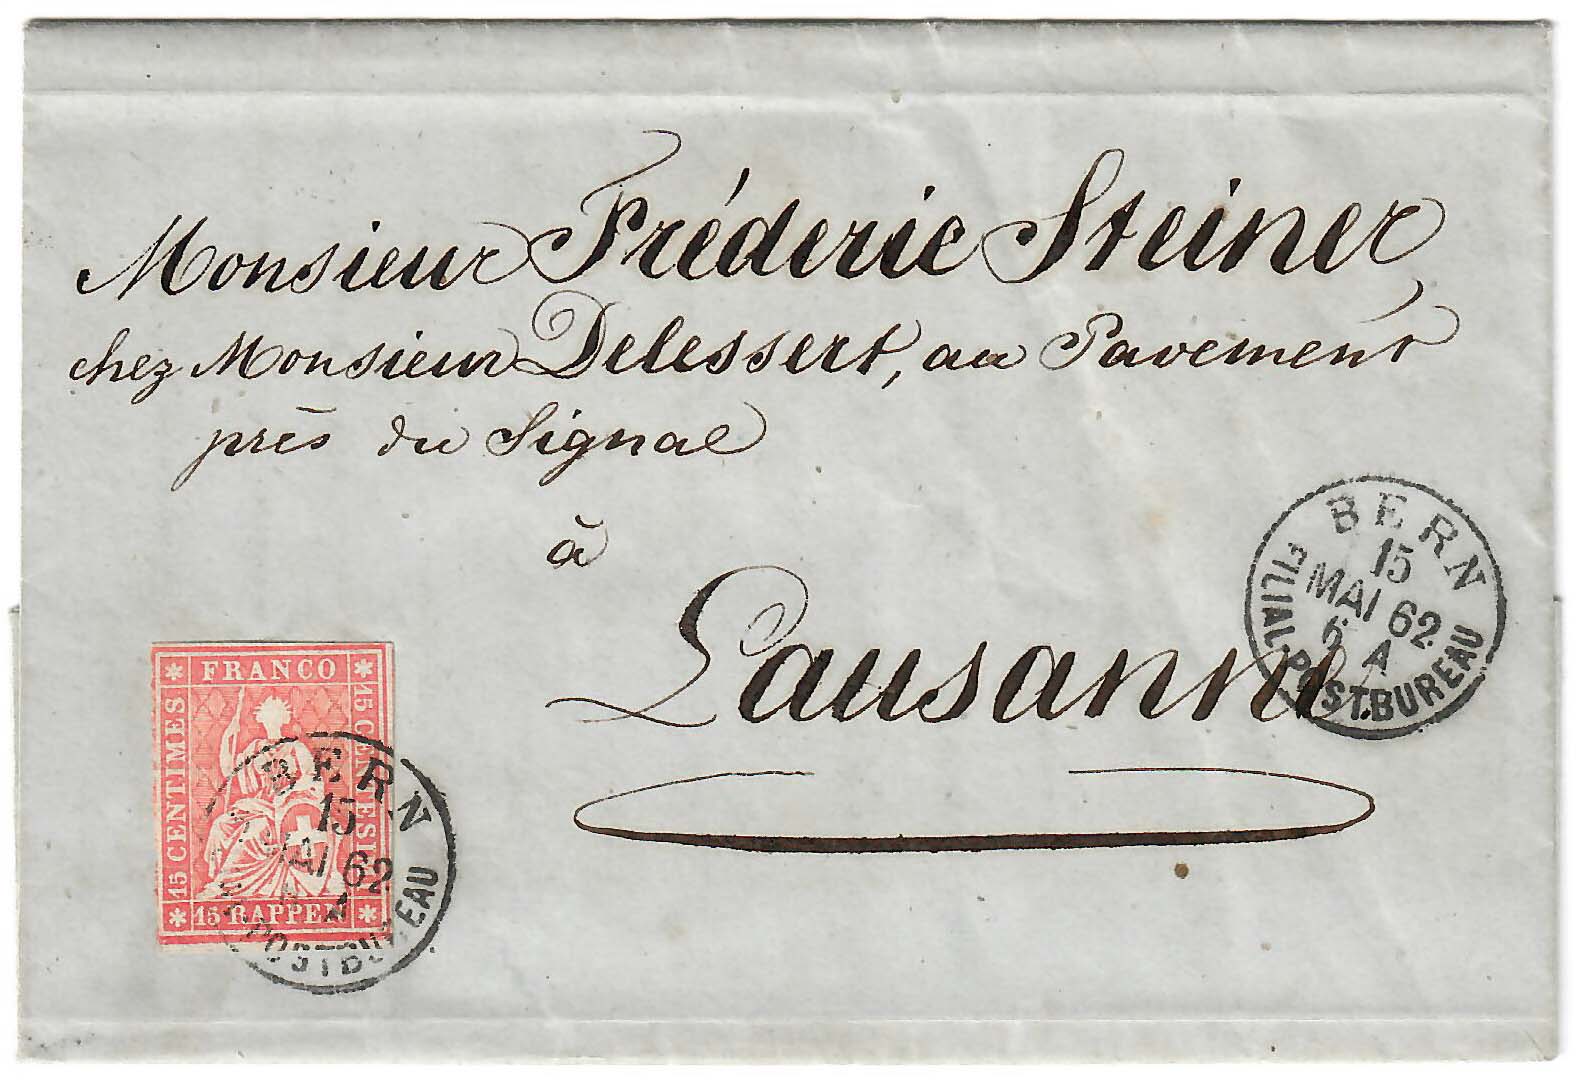 Monsieur Fréderic Steiner,
chez Monsieur Delessert, au Pavement
près du Signal
à
Lausanne
BERN
15
MAI 62
6 A
FILIAL-POSTBUREAU
FRANCO
15 CENTIMES
15 CENTESI
15 RAPPEN
BERN
15
MAI 62
POSTBUREAU